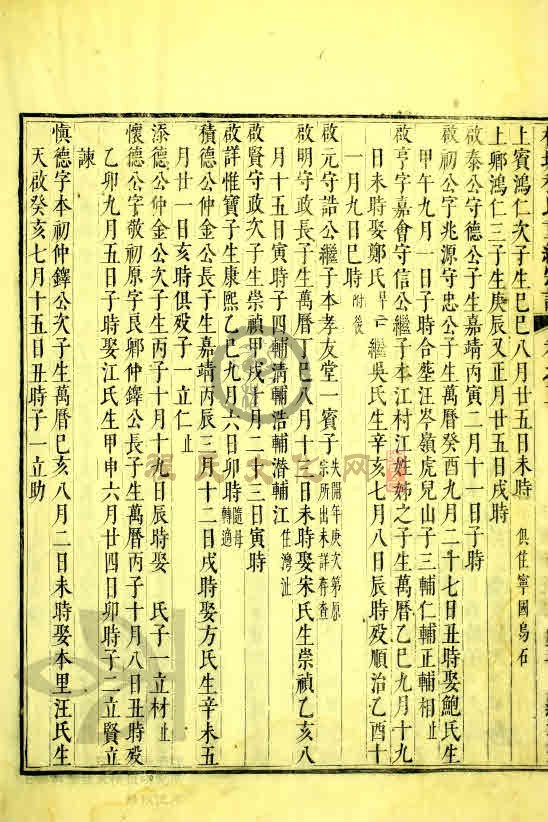 上賓鴻仁次子生己巳八月廿五日未時
上鄉鴻仁三子生庚辰又正月廿五日戌時 俱住寧國烏石
啟泰公守德公子生嘉靖丙寅二月十一日子時
啟初公字兆源守忠公子生萬曆癸酉九月二十七日丑時娶鮑氏生
甲午九月一日子時合塟汪岑嶺虎兒山子三輔仁輔正輔相止
啟亨字嘉會守信公繼子本江村江姓姊之子生萬曆乙巳九月十九
日未時娶鄭氏 繼吳氏生辛亥七月八日辰時殁順治乙酉十
一月九日巳時 附後
啟元守誥公繼子本孝友堂一賓子
宗所出未詳存查
啟明守政長子生萬曆丁巳八月十三日未時娶宋氏生崇禎乙亥八
月十五日寅時子四輔清輔浩輔潜輔江 住灣沚
啟賢守政次子生崇禎甲戌十月二十三日寅時
啟詳惟寶子生康熙乙巳九月六日卯時 隨母轉適
積德公仲金公長子生嘉靖丙辰三月十二日戌時娶方氏生辛未五
月廿一日亥時俱殁子一立仁止
添德公仲金公次子生丙子十月十九日辰時娶 氏子一立材止
懷德公字敬初原字良卿仲鐸公長子生萬曆丙子十月八日丑時殁
乙卯九月五日子時娶江氏生甲申六月廿四日卯時子二立賢立
諫
慎德字本初仲鐸公次子生萬曆己亥八月二日未時娶本里汪氏生
天啟癸亥七月十五日丑時子一立助
程氏文化网